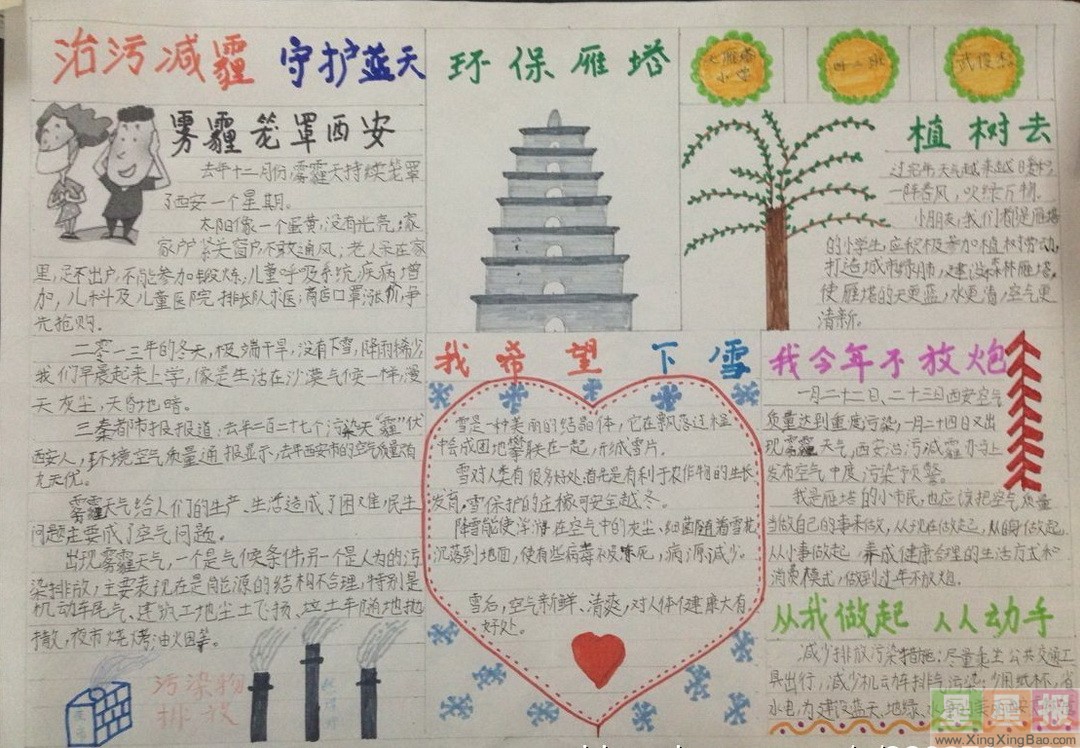 治污减霾 守护蓝天
环保雁塔
大雁塔
小学
四二班
武俊杰
雾霾笼罩西安
去年十二月份,雾霾天持续笼罩
了西安一个星期。
太阳像一个蛋黄,没有光亮;家
家户户紧关窗户,不敢通风;老人呆在家
里,足不出户,不能参加锻炼;儿童呼吸系统疾病增
加,儿科及儿童医院排长队求医;商店口罩涨价,争
先抢购.
二零一三年的冬天,极端干旱,没有下雪,降雨稀少,
我们早晨起来上学,像是生活在沙漠气候一样,漫
天灰尘,天昏地暗。
三秦都市报报道:去年二百二十七个污染天“霾”伏
西安人,环境空气质量通报显示,去年西安市的空气质量有
九天优。
雾霾天气给人们的生产、生活造成了困难,民生
问题主要成了空气问题。
出现雾霾天气,一个是气候条件,另一个是人为的污
染排放,主要表现在是能源的结构不合理,特别是
机动车尾气、建筑工地尘土飞扬、垃圾随地抛
撒,夜市烧烤油烟等。
污染物
排放
植树去
过完年,天气越来越日暖和
一阵春风,吹绿万物.
小朋友,我们都是雁塔
的小学生,应积极参加植树劳动,
打造城市绿肺,建设森林雁塔,
使雁塔的天更蓝,水更清,空气更
清新。
我希望下雪
雪是一种美丽的结晶体,它在飘落过程
中会成团地攀联在一起,形成雪片.
雪对人类有很多好处.首先是有利于农作物的生长
发育,雪保护的庄稼可安全越冬。
降雪能使浮游在空气中的灰尘、细菌随着雪花
沉落到地面,使有些病毒不及冻死,病源减少。
雪后,空气新鲜、清爽,对人体健康大有
好处。
我今年不放炮
一月二十二日、二十三日西安空气
质量达到重度污染,一月二十四日又出
现雾霾天气,西安治污减霾办马上
发布空气中度污染预警。
我是雁塔的小市民,也应该把空气质量
当做自己的事来做,从现在做起,从自身做起,
从小事做起,养成健康合理的生活方式和
消费模式,做到过年不放炮.
从我做起 人人动手
减少排放污染措施:尽量乘坐公共交通工
具出行,减少机动车排气污染;少用纸杯,省
水电,为建设蓝天、地绿、
星星报
www.XingXingBao.com